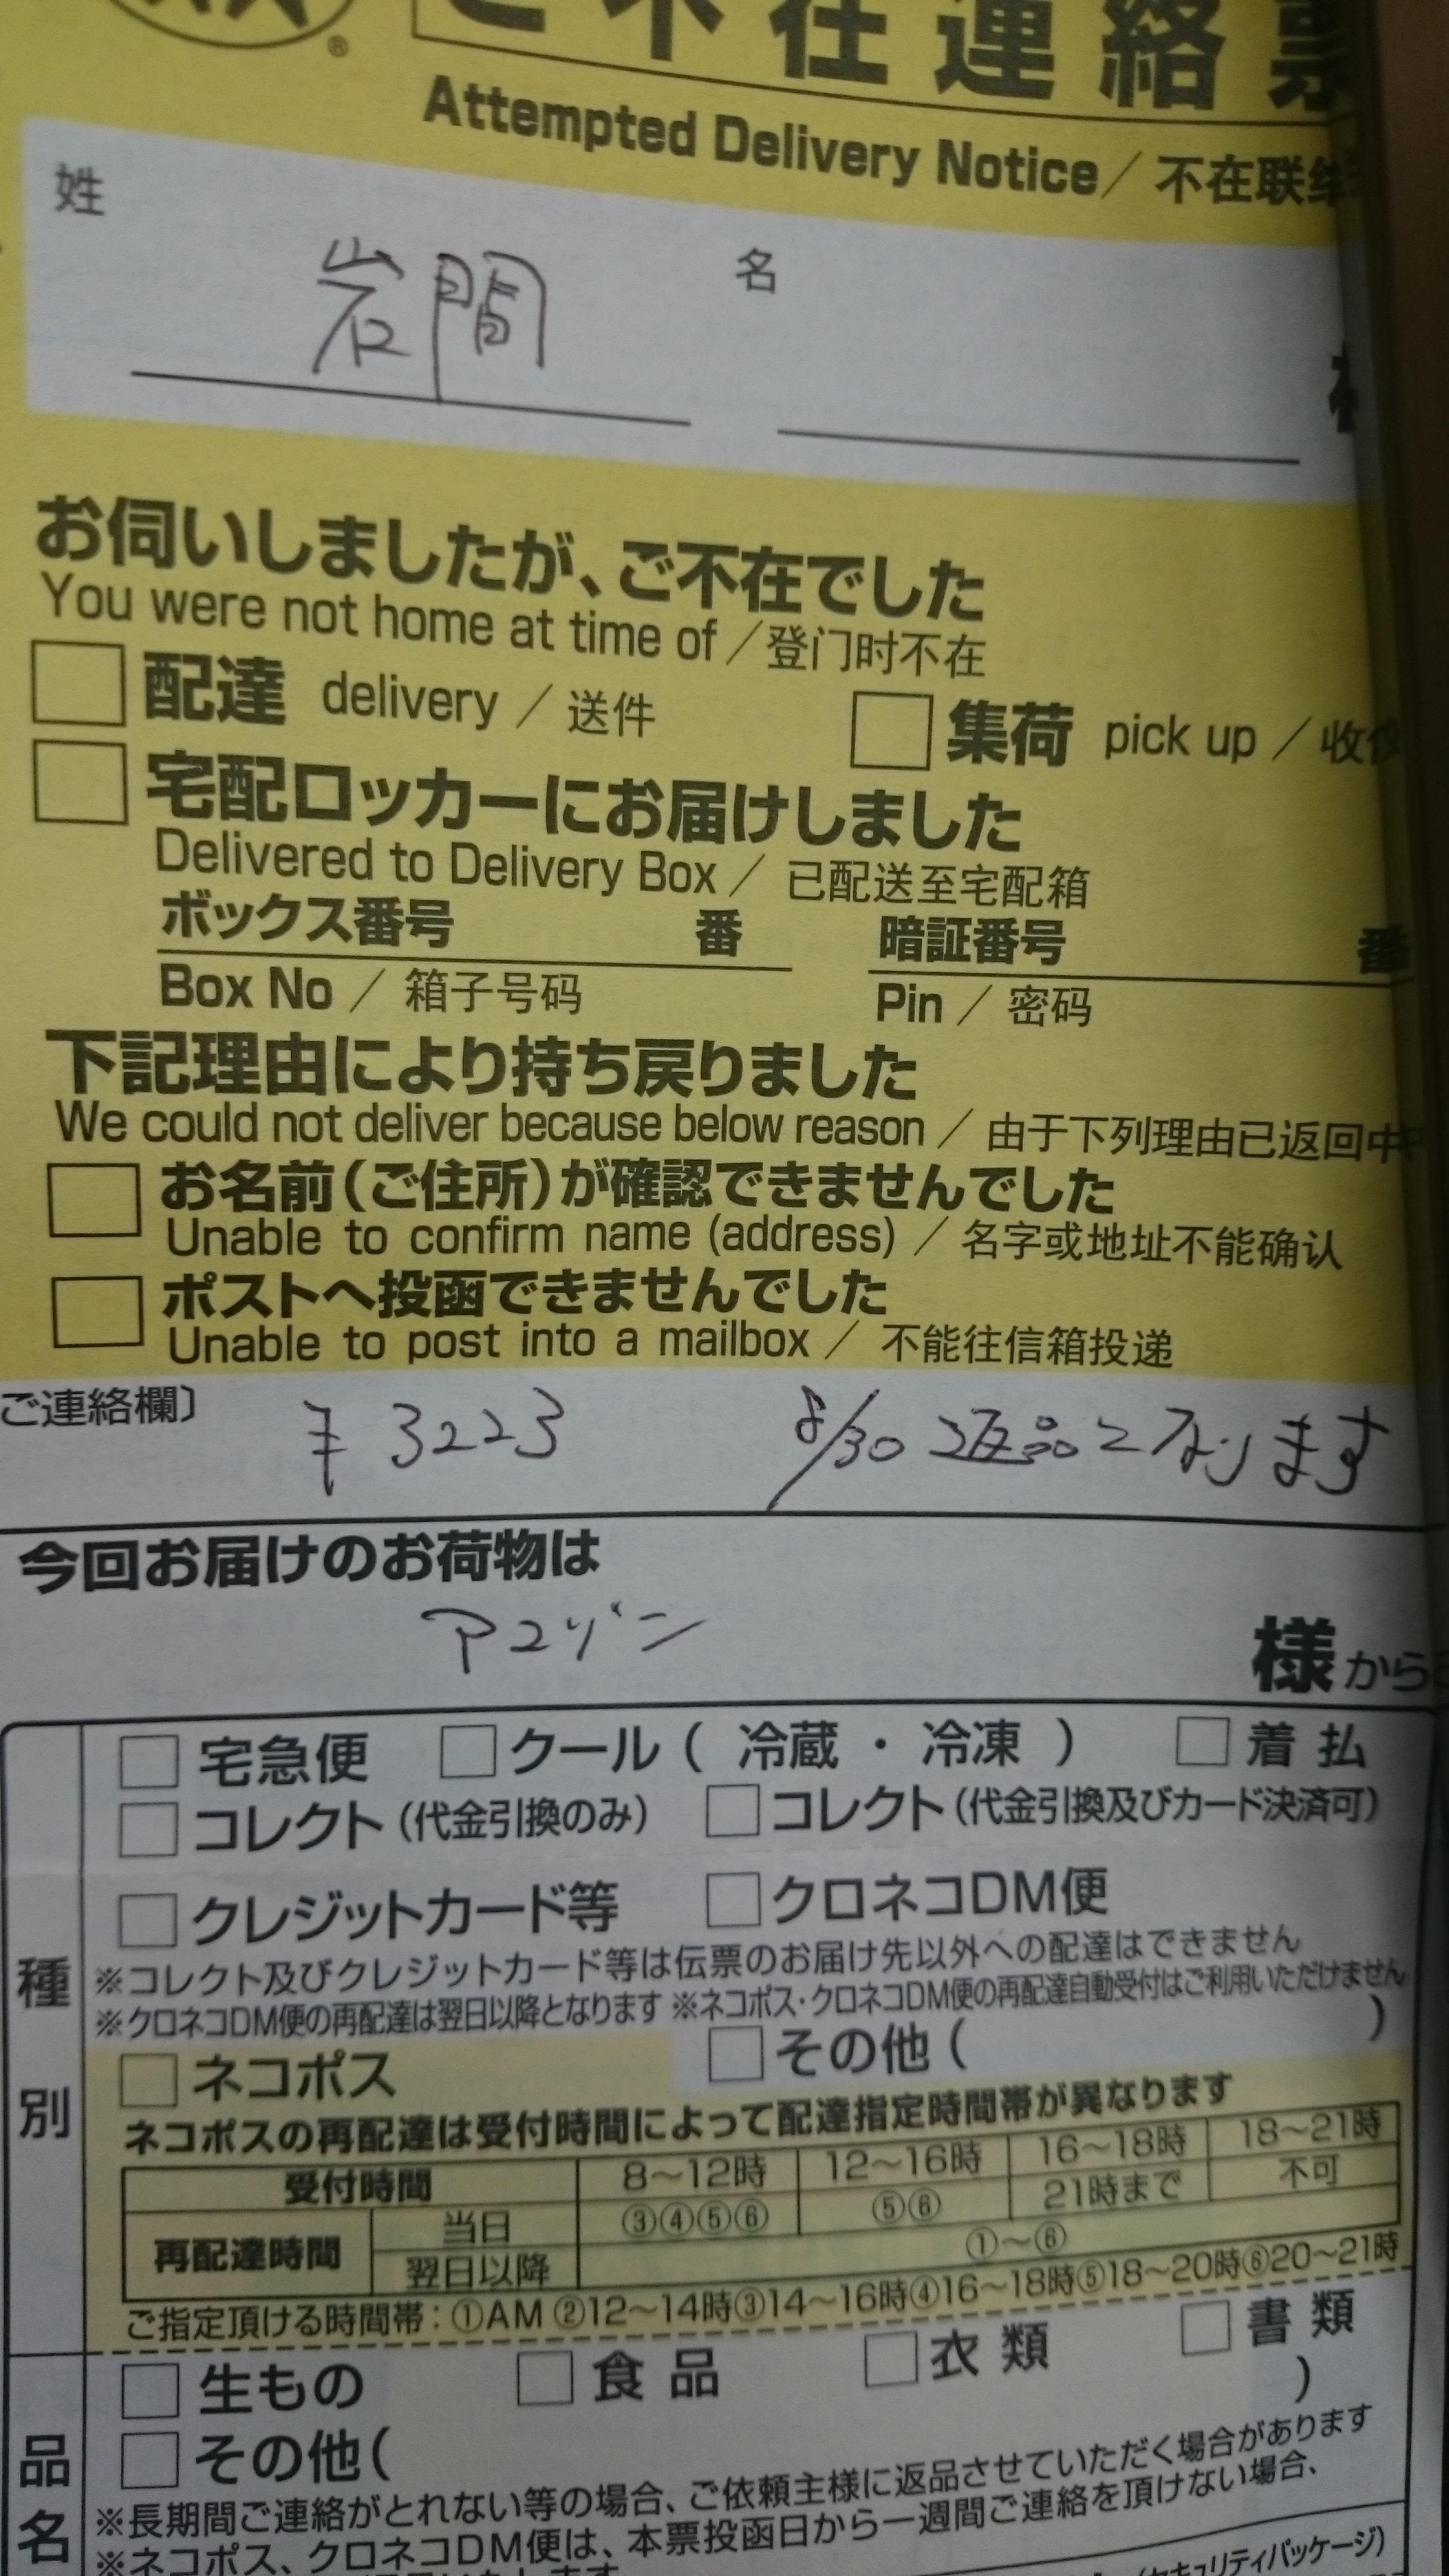 ®
ご不在連絡票
Attempted Delivery Notice／不在联络
姓 岩間 名
お伺いしましたが、ご不在でした
You were not home at time of／登门时不在
配達 delivery／送件 集荷 pick up／收
宅配ロッカーにお届けしました
Delivered to Delivery Box／已配送至宅配箱
ボックス番号 番 暗証番号 番
Box No／箱子号码 Pin／密码
下記理由により持ち戻りました
We could not deliver because below reason／由于下列理由已返回中
お名前(ご住所)が確認できませんでした
Unable to confirm name (address)／名字或地址不能确认
ポストへ投函できませんでした
Unable to post into a mailbox／不能往信箱投递
ご連絡欄〕 ¥3223 8/30 返品となります
今回お届けのお荷物は
アマゾン 様から
種別
宅急便 クール( 冷蔵 ・ 冷凍 ) 着払
コレクト(代金引換のみ) コレクト(代金引換及びカード決済可)
クレジットカード等 クロネコDM便
※コレクト及びクレジットカード等は伝票のお届け先以外への配達はできません
※クロネコDM便の再配達は翌日以降となります ※ネコポス・クロネコDM便の再配達自動受付はご利用いただけません
ネコポス その他( )
ネコポスの再配達は受付時間によって配達指定時間帯が異なります
受付時間 8～12時 12～16時 16～18時 18～21時
再配達時間 当日 ③④⑤⑥ ⑤⑥ 21時まで 不可
翌日以降 ①～⑥
ご指定頂ける時間帯：①AM ②12～14時③14～16時④16～18時⑤18～20時⑥20～21時
品名
生もの 食品 衣類 書類
その他( )
※長期間ご連絡がとれない等の場合、ご依頼主様に返品させていただく場合があります
※ネコポス、クロネコDM便は、本票投函日から一週間ご連絡を頂けない場合、
セキュリティパッケージ)